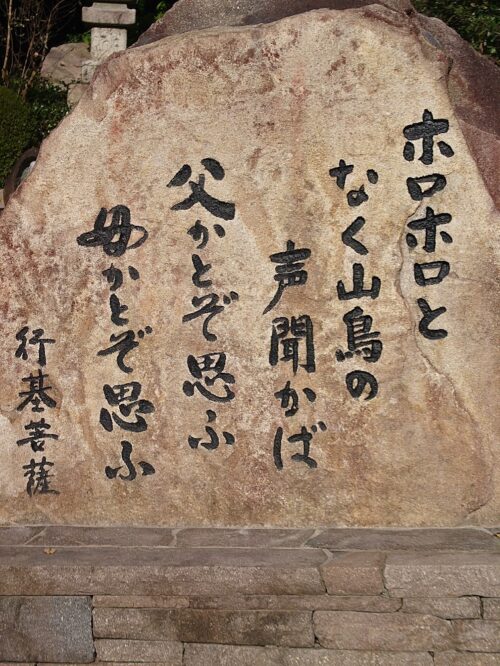 ホロホロと
なく山鳥の
声聞かば
父かとぞ思ふ
母かとぞ思ふ
行基菩薩